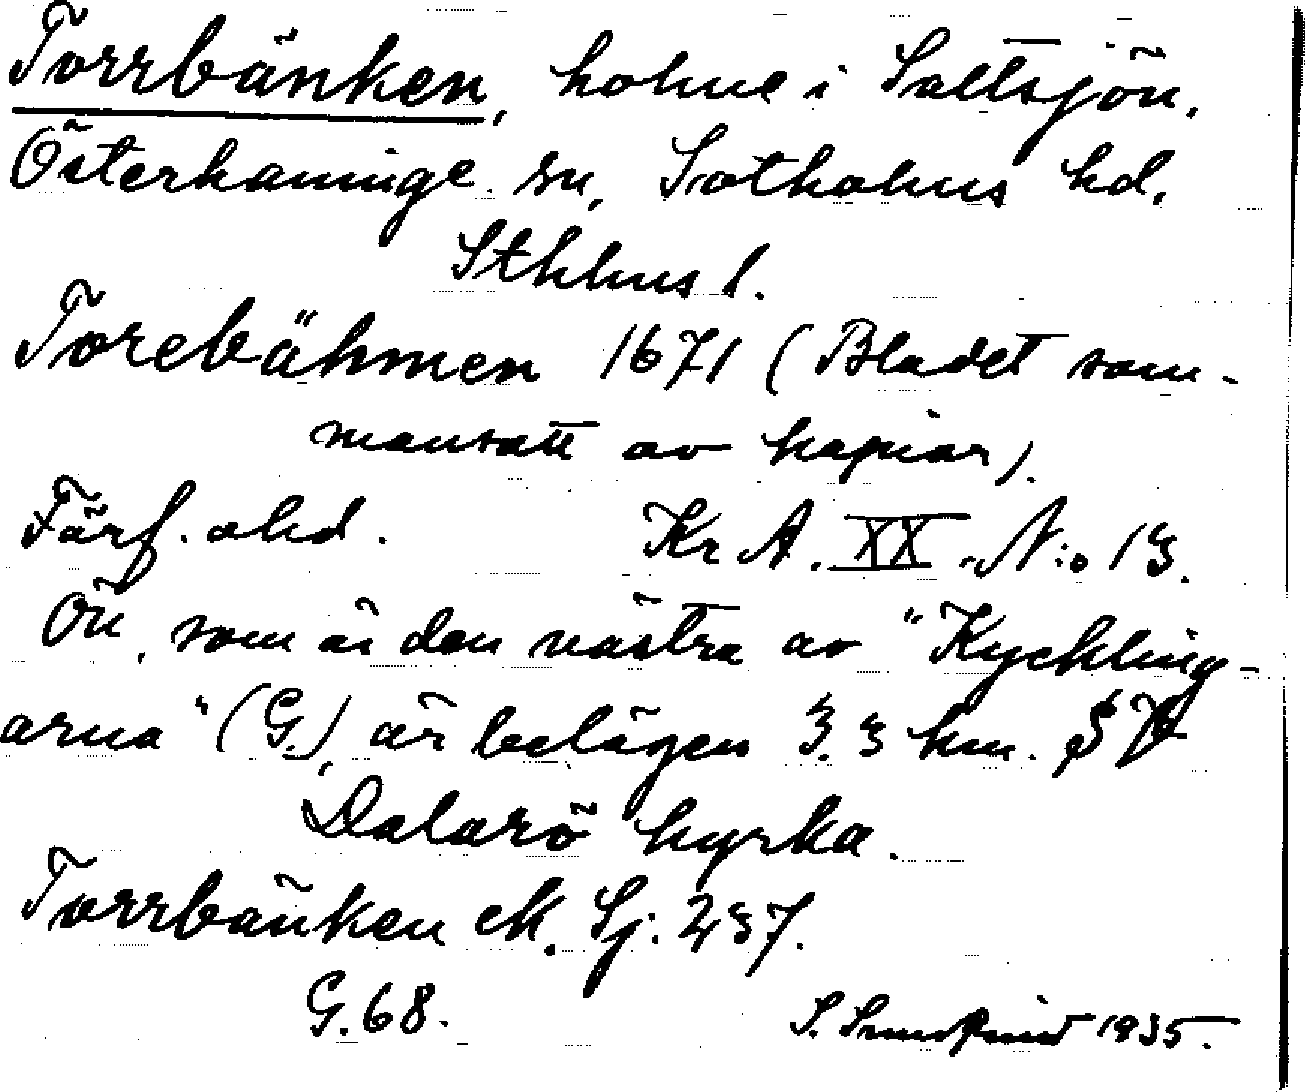 Torrbänken, holme i Saltsjön.
Österhaninge sn, Sotholms hd.
Sthlms l.
Torebähmen 1671 (Bladet sam-
mansatt av kopior).
Förf. okd. Kr A. XX. N:o 13.
Ön, som är den västra av "Kyckling-
arna" (G.), är belägen 3.3 km.
Dalarö kyrka.
Torrbänken ek. Sj. 237.
G. 68. S. 1935.